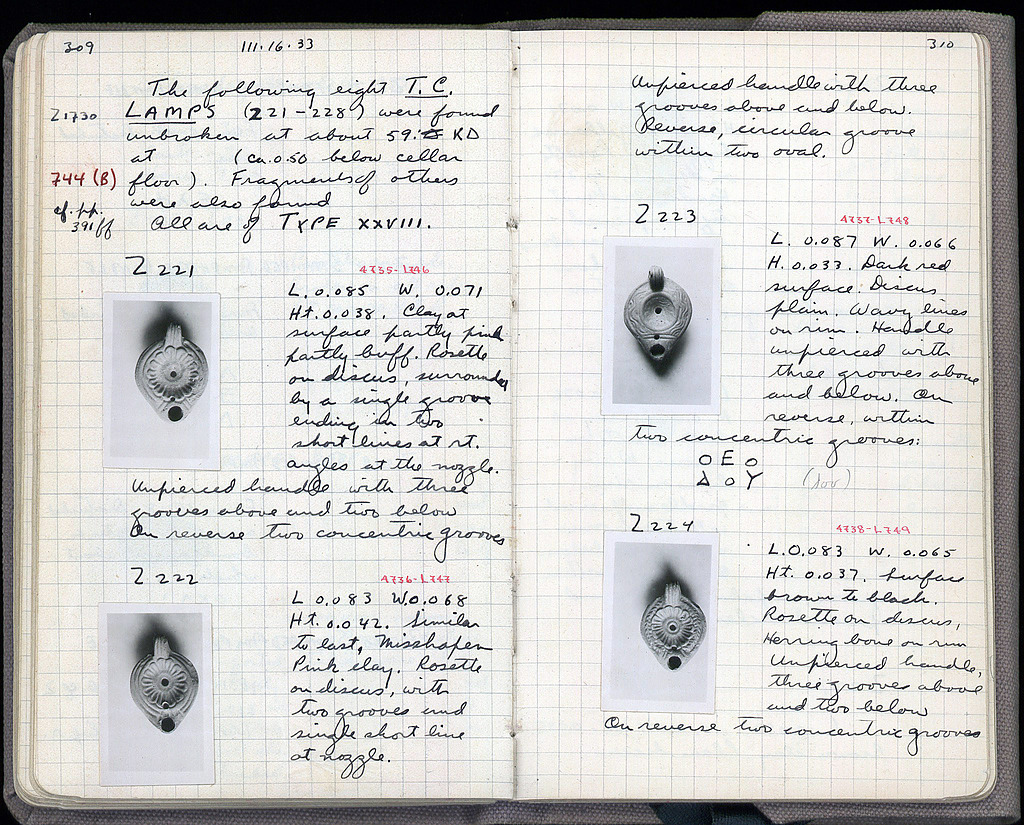 309
III.16.33
The following eight T.C.
Z1730 LAMPS (Z221-228) were found
unbroken at about 59. KD
at (ca. 0.50 below cellar
744 (B) floor). Fragments of others
cf. pp. were also found
391ff All are of TYPE XXVIII.
Z 221
4735-L746
L. 0.085 W. 0.071
Ht. 0.038. Clay at
surface partly pink
partly buff. Rosette
on discus, surrounded
by a single groove
ending in two
short lines at rt.
angles at the nozzle.
Unpierced handle with three
grooves above and two below
On reverse two concentric grooves
Z 222
4736-L747
L 0.083 W.0.068
Ht. 0.042. Similar
to last, Misshapen
Pink clay. Rosette
on discus, with
two grooves and
single short line
at nozzle.
310
Unpierced handle with three
grooves above and below.
Reverse, circular groove
within two oval.
Z 223
4737-L748
L. 0.087 W. 0.066
H. 0.033. Dark red
surface. Discus
plain. Wavy lines
on rim. Handle
unpierced with
three grooves above
and below. On
reverse, within
two concentric grooves:
O E O
Δ O Y
Z 224
4738-L749
L. 0.083 W. 0.065
Ht. 0.037. Surface
brown to black.
Rosette on discus,
Herring bone on rim
Unpierced handle,
three grooves above
and two below
On reverse two concentric grooves